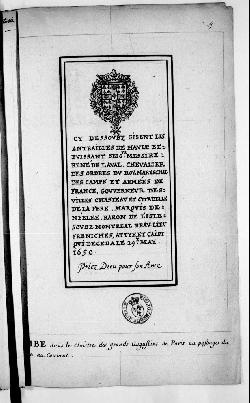 CY DESSOUBZ GISENT LES
ENTRAILLES DE HAVLT ET
PVISSANT SEIG.R MESSIRE
RENÉ DE LAVAL CHEVALIER
DES ORDRES DU ROI MARESCHAL
DES CAMPS ET ARMÉES DE
FRANCE, GOUVERNEUR DES
VILLES CHASTEAV ET CITADELLE
DE LA FERE, MARQUIS DE
NESLE BARON DE
MONTREAL
FRENICHES, ET
QVI DECEDA LE 19.E MAY
1650
Priez Dieu pour son Ame
dans le Cloistre des grands Augustins de Paris au passage du
au Convent.